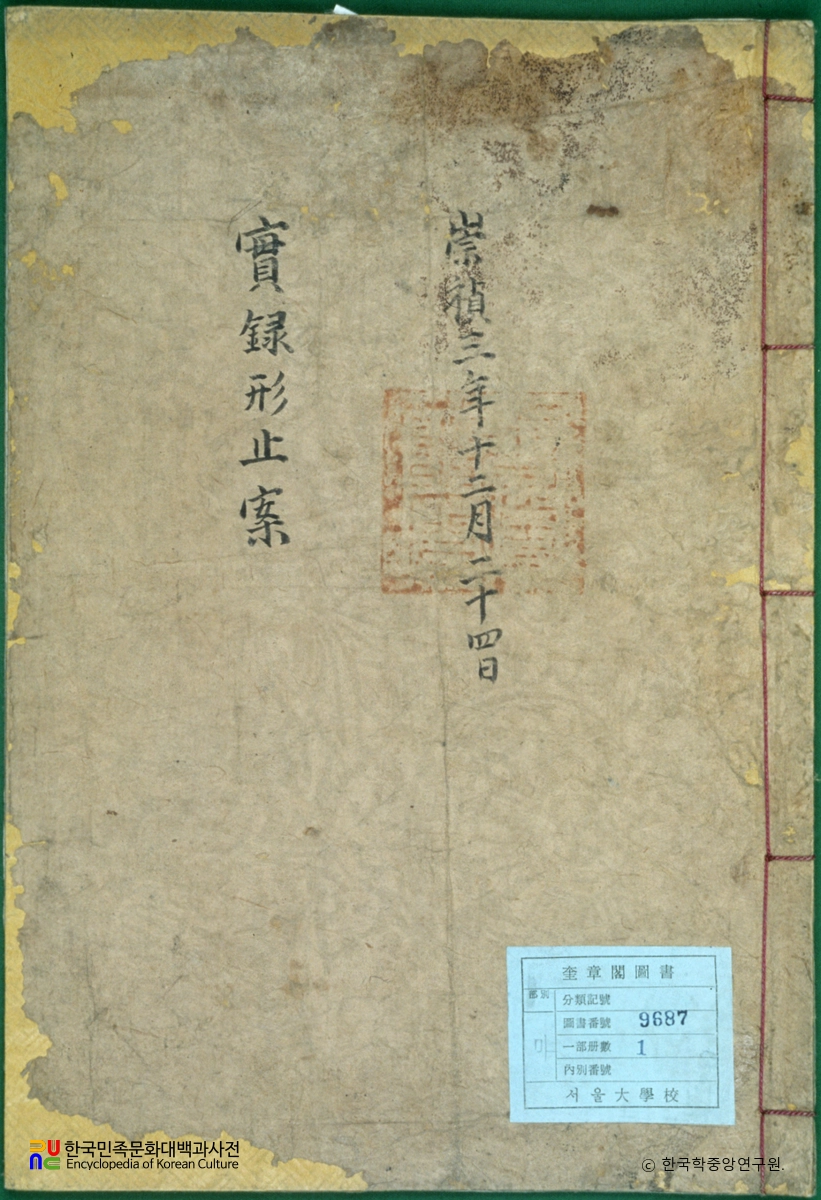 崇禎三年十二月二十四日
實録形止案
奎章閣圖書
部別
分類記號
圖書番號 9687
一部册數 1
內別番號
서울大學校
한국민족문화대백과사전
Encyclopedia of Korean Culture
© 한국학중앙연구원.